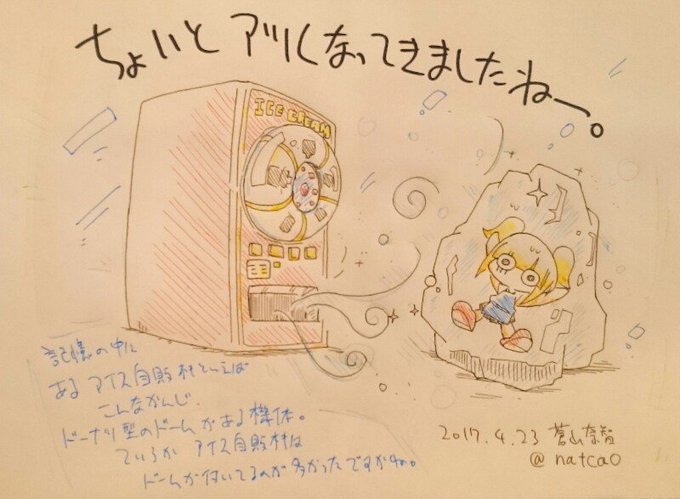 ちょいと アツくなってきましたねー。
ICE CREAM
記憶の中に
ある アイス自販機といえば
こんなかんじ.
ドーナツ型のドームがある機体。
ていうか アイス自販機は
ドームが付いてるのが多かったですかね。
2017.4.23 蒼山奈智
@natcao